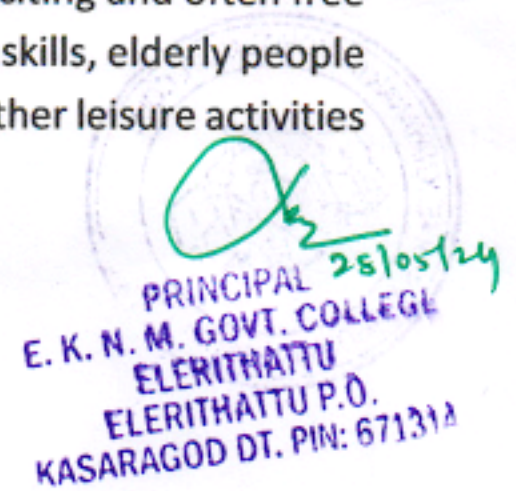 skills, elderly people
ther leisure activities
28/05/24
PRINCIPAL
E. K. N. M. GOVT. COLLEGE
ELERITHATTU
ELERITHATTU P.O.
KASARAGOD DT. PIN: 671314